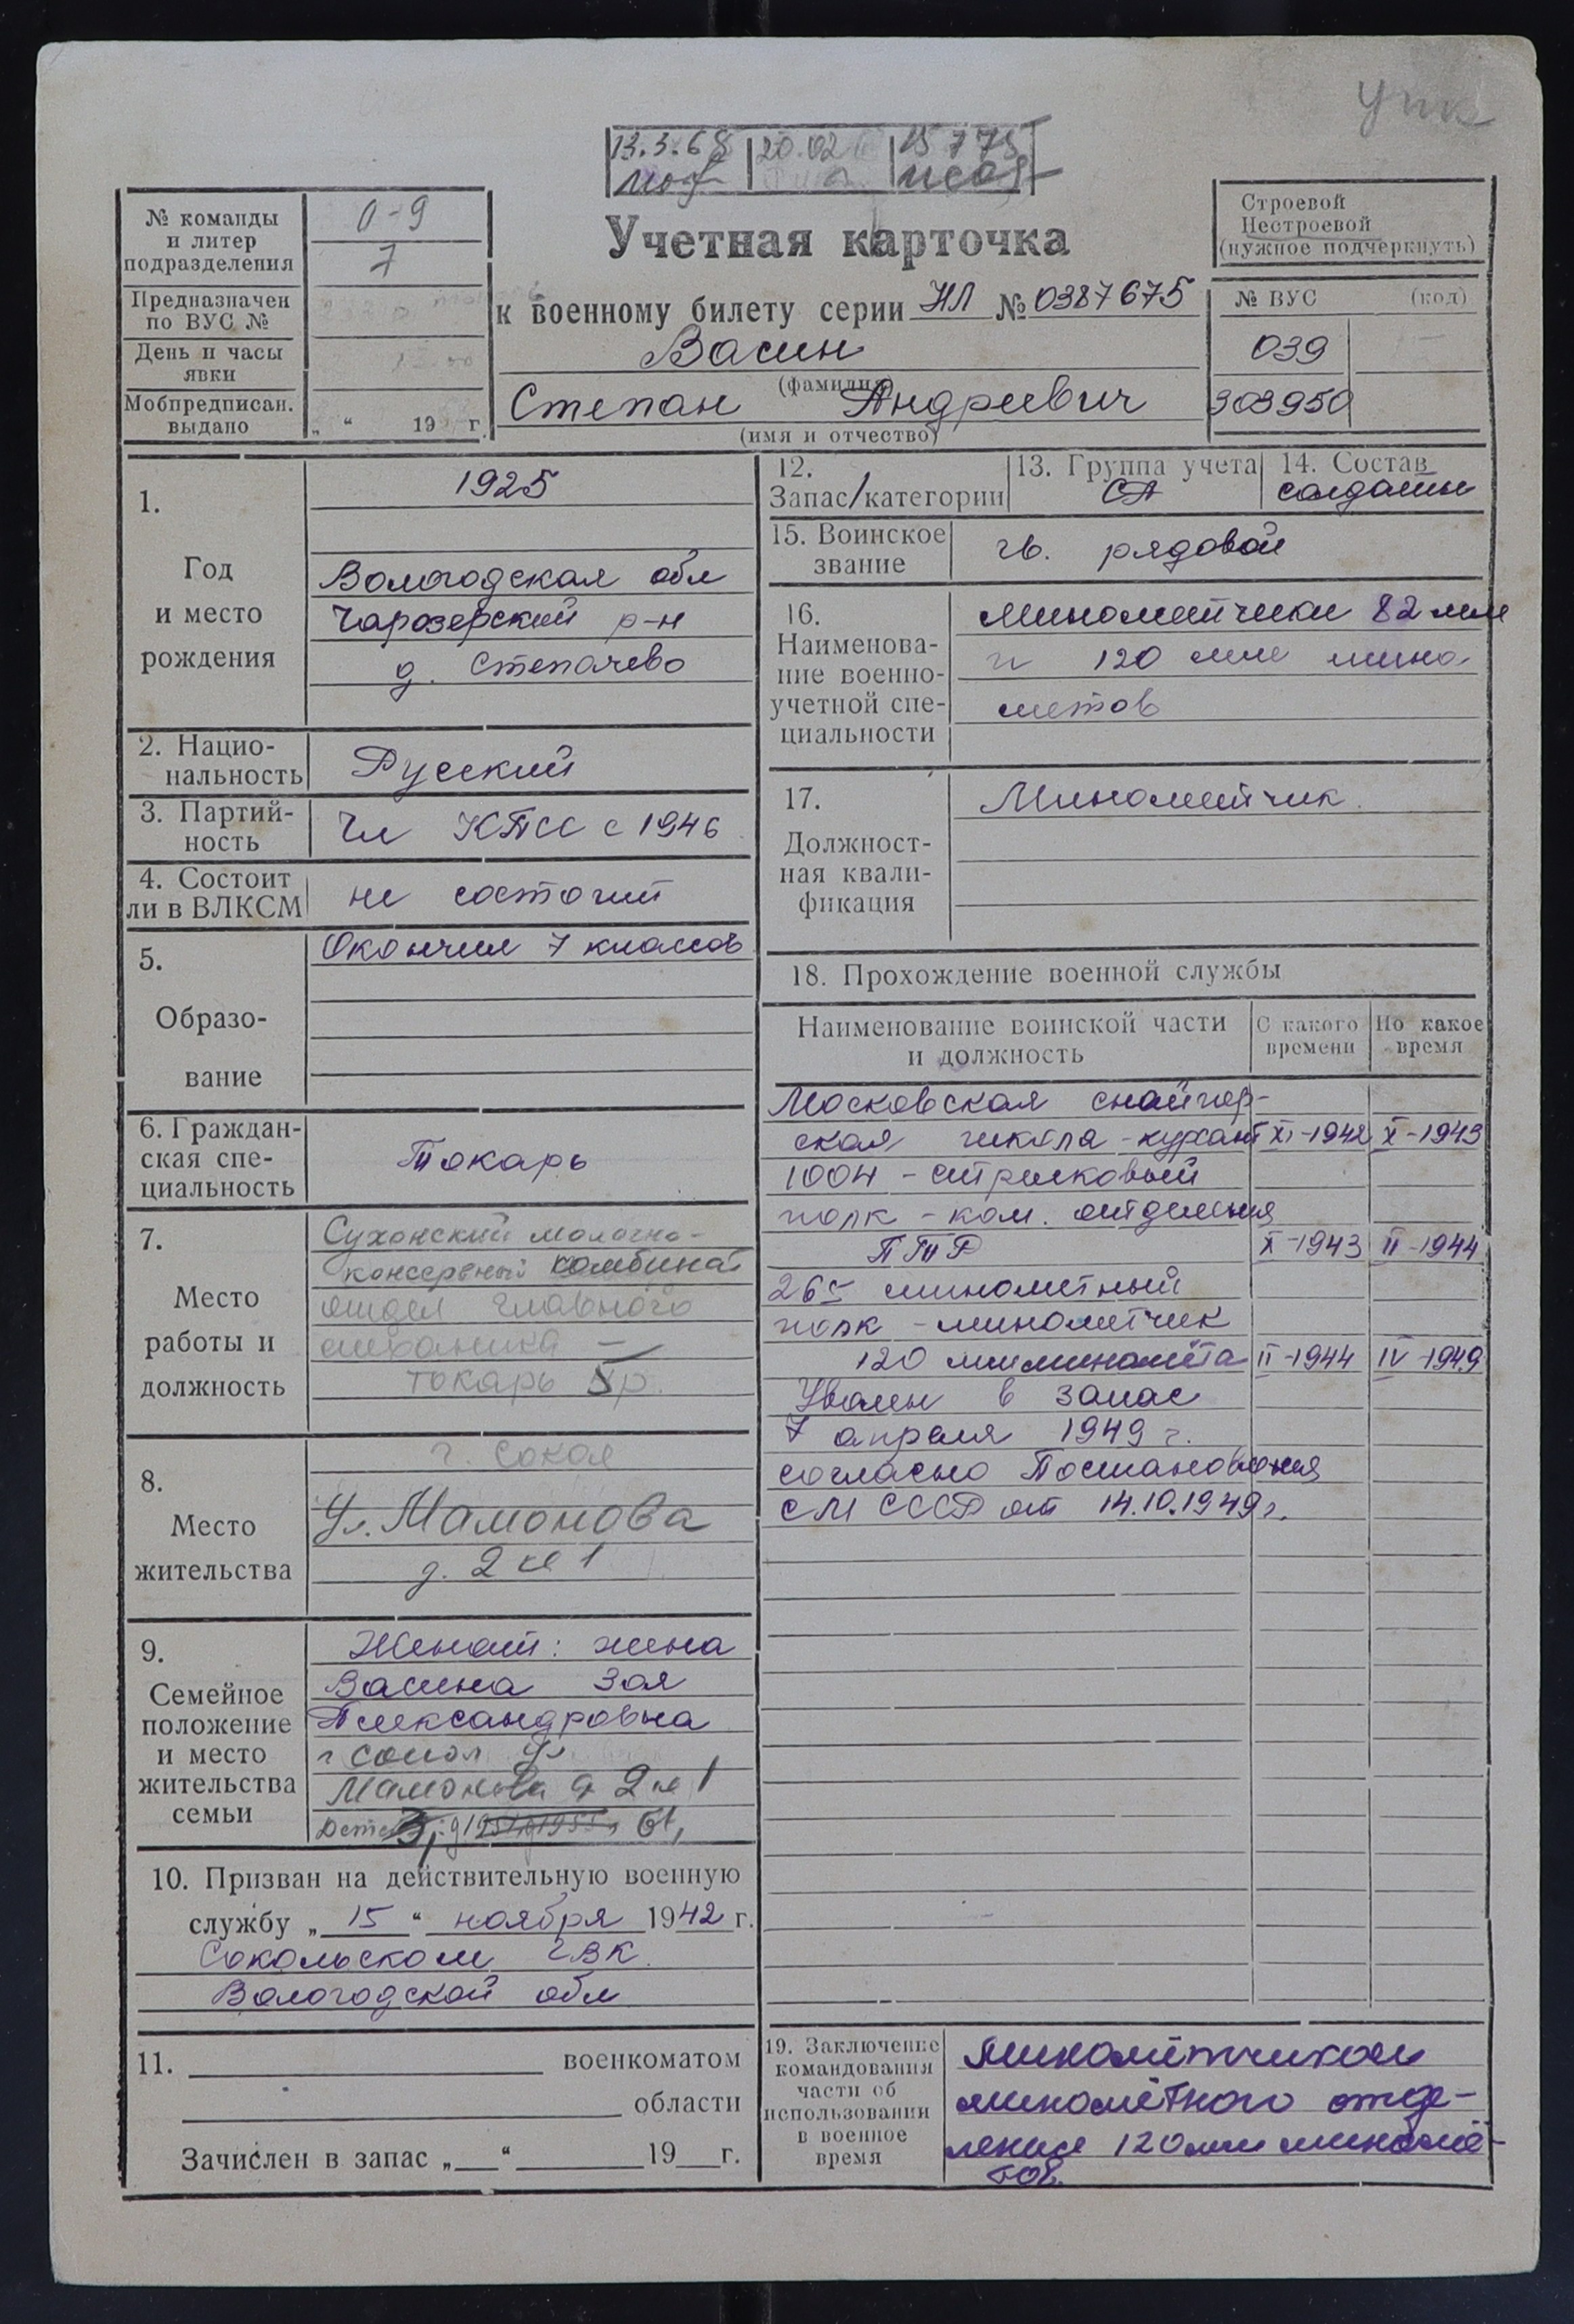 упк
13.3.68 20.02 15 7 75
№ команды
и литер
подразделения
0-9
7
Предназначен
по ВУС №
День и часы
явки
Мобпредписан.
выдано
„ “ 19 г.
Учетная карточка
к военному билету серии НЛ № 0387675
Васин
(фамилия)
Степан Андреевич
(имя и отчество)
Строевой
Нестроевой
(нужное подчеркнуть)
№ ВУС (код)
039
303950
1.
Год
и место
рождения
1925
Вологодская обл
Чарозерский р-н
д. Степачево
2. Нацио-
нальность
Русский
3. Партий-
ность
Чл КПСС с 1946
4. Состоит
ли в ВЛКСМ
не состоит
5.
Образо-
вание
Окончил 7 классов
6. Граждан-
ская спе-
циальность
Токарь
7.
Место
работы и
должность
Сухонский молочно-
консервный комбинат
отдел главного
механика —
токарь 5 р.
8.
Место
жительства
г. Сокол
Ул. Мамонова
д. 2 кв 1
9.
Семейное
положение
и место
жительства
семьи
Женат: жена
Васина Зоя
Александровна
г Сокол ул
Мамонова д 2 кв 1
Дети
10. Призван на действительную военную
службу „ 15 “ ноября 1942 г.
Сокольском ГВК
Вологодской обл
11. военкоматом
области
Зачислен в запас „ “ 19 г.
12.
Запас/категории
13. Группа учета
СА
14. Состав
солдаты
15. Воинское
звание
гв. рядовой
16.
Наименова-
ние военно-
учетной спе-
циальности
Минометчики 82 мм
и 120 мм мино-
метов
17.
Должност-
ная квали-
фикация
Минометчик.
18. Прохождение военной службы
Наименование воинской части
и должность
С какого
времени
По какое
время
Московская снайпер-
ская школа - курсант XI-1942 X-1943
1004 - стрелковый
полк - ком. отделения
ПТР X-1943 II-1944
265 минометный
полк - минометчик
120 мм миномёта II-1944 IV-1949
Уволен в запас
7 апреля 1949 г.
согласно Постановления
СМ СССР от 14.10.1949 г.
19. Заключение
командования
части об
использовании
в военное
время
Миномётчиком
миномётного отде-
ления 120 мм миномё-
тов.